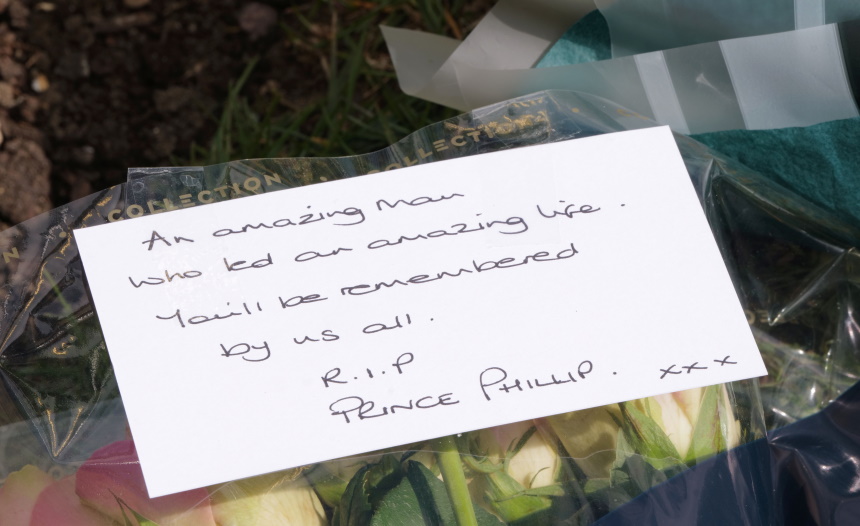 COLLECTION
COLLECTION
An amazing man
who led an amazing life.
You'll be remembered
by us all.
R.I.P
PRINCE PHILLIP. xxx